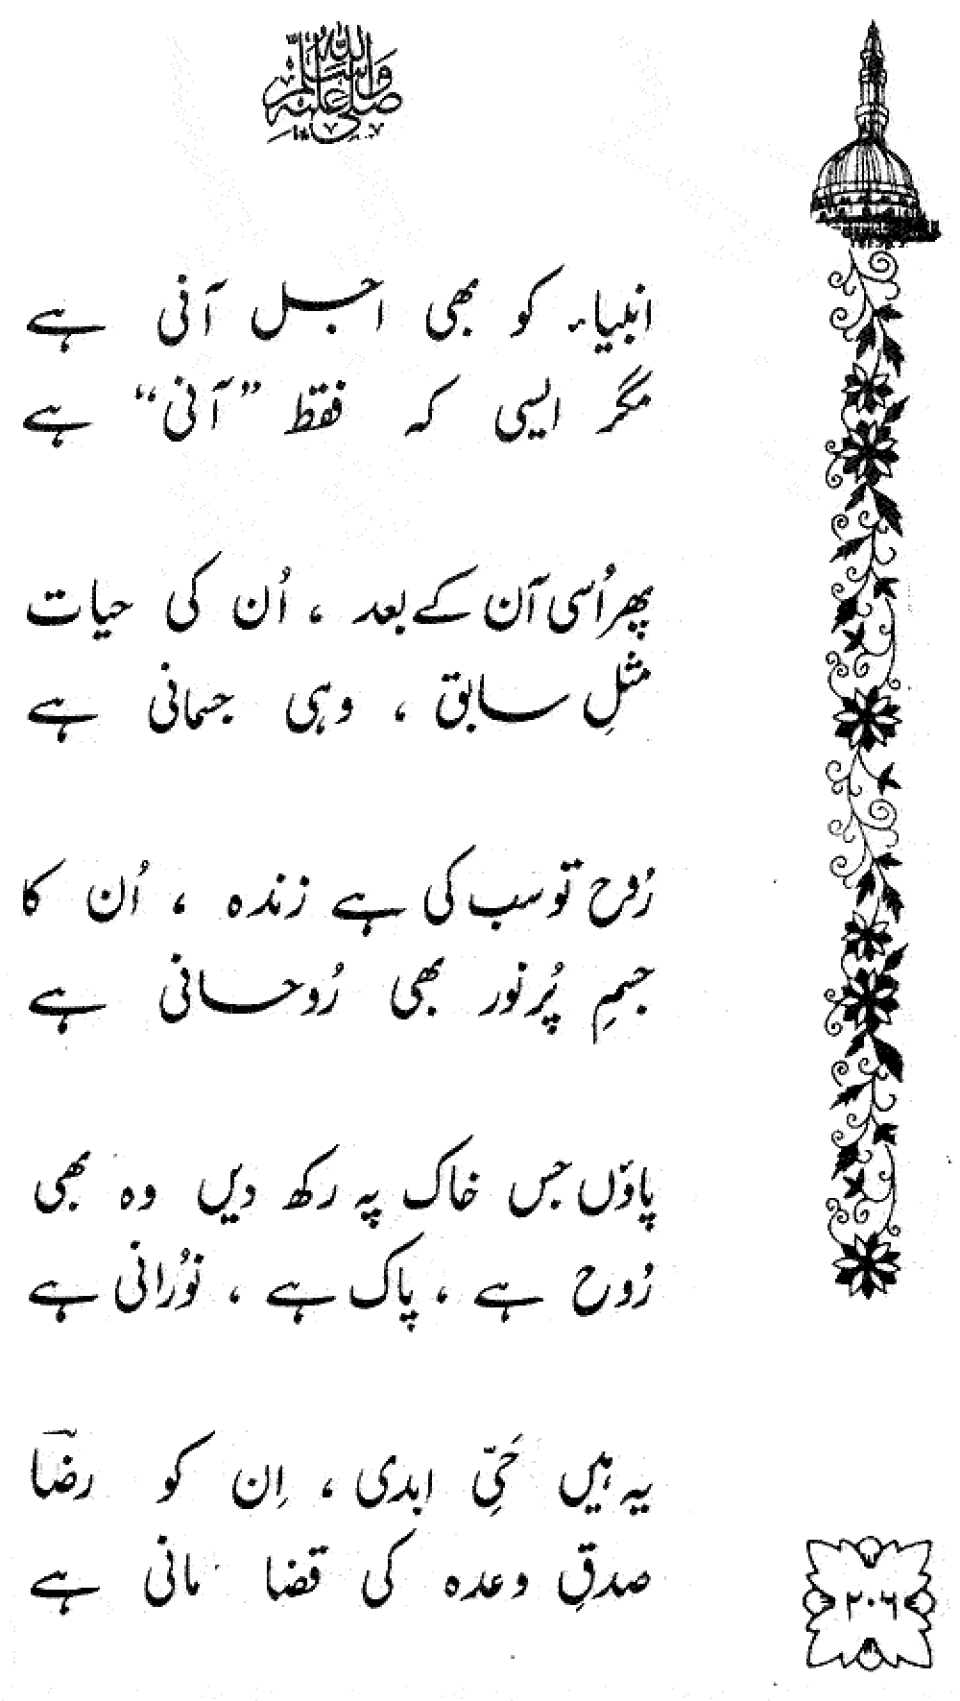 صلی اللہ علیہ وسلم
انبیاء کو بھی اجل آنی ہے
مگر ایسی کہ فقط ”آنی“ ہے
پھر اُسی آن کے بعد ، اُن کی حیات
مثلِ سابق ، وہی جسمانی ہے
رُوح تو سب کی ہے زندہ ، اُن کا
جسمِ پُرنور بھی رُوحانی ہے
پاؤں جس خاک پہ رکھ دیں وہ بھی
رُوح ہے ، پاک ہے ، نوُرانی ہے
یہ ہیں حَیِّ ابدی ، اِن کو رضاؔ
صدقِ وعدہ کی قضا مانی ہے
۲۰۶